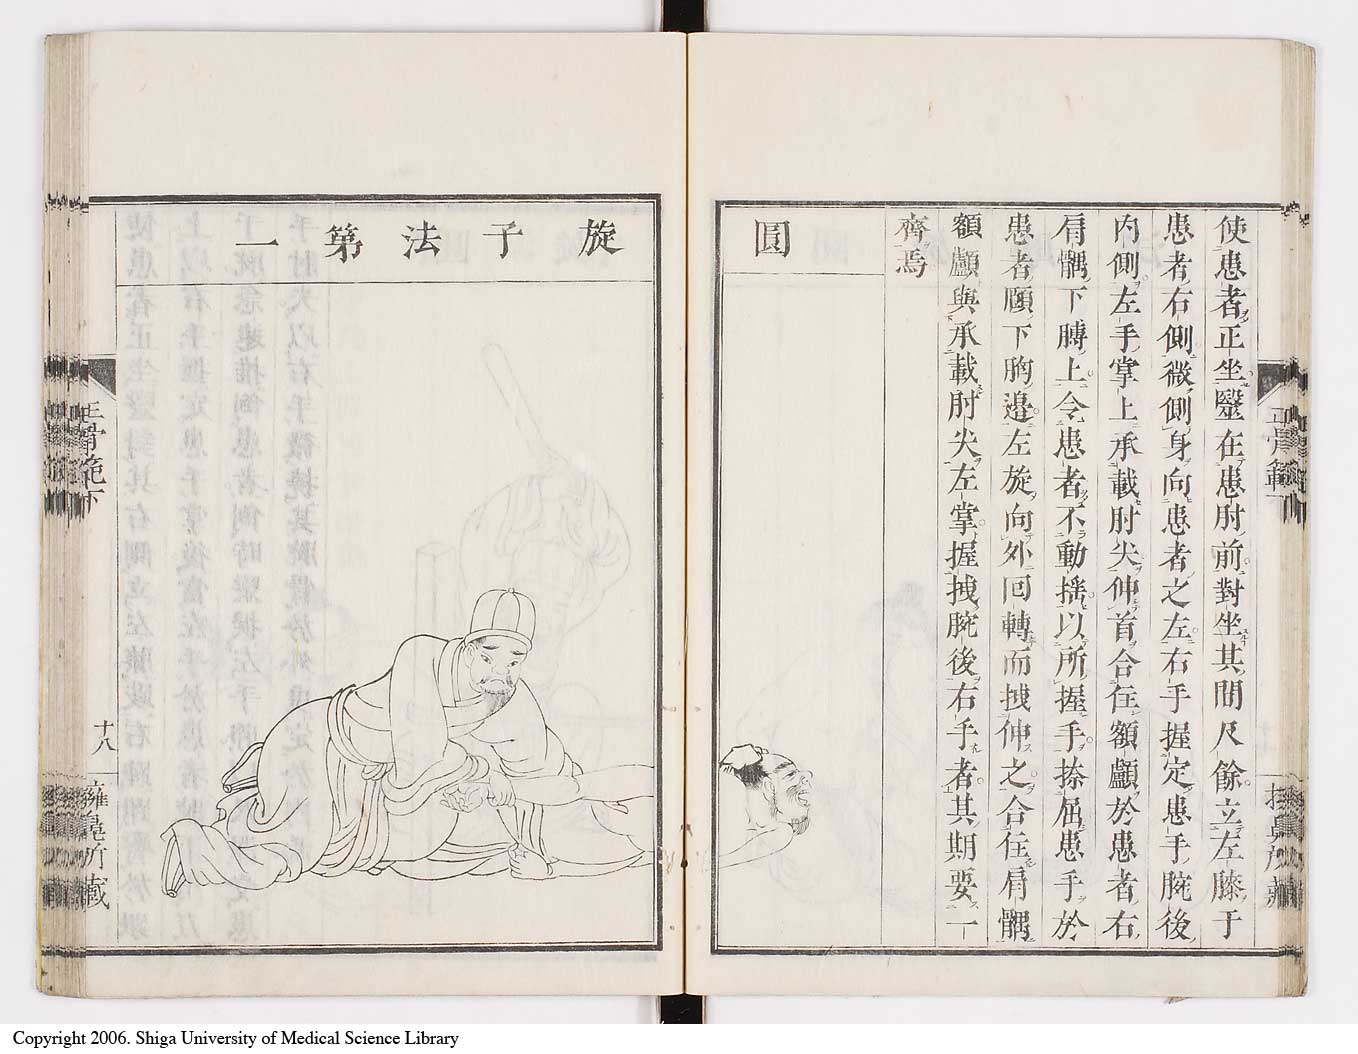 使患者正坐毉在患肘前對坐其間尺餘立左膝于
患者右側微側身向患者之左右手握定患手腕後
內側左手掌上承載肘尖伸首合在額顱於患者右
肩髃下膊上令患者不動搖以所握手捺屈患手於
患者頤下胸邊左旋向外回轉而拽伸之合在肩髃
額顱與承載肘尖左掌握拽腕後右手者其期要一
齊焉
圓
旋子法第一
正骨範下
十八
擁鼻所藏
Copyright 2006. Shiga University of Medical Science Library